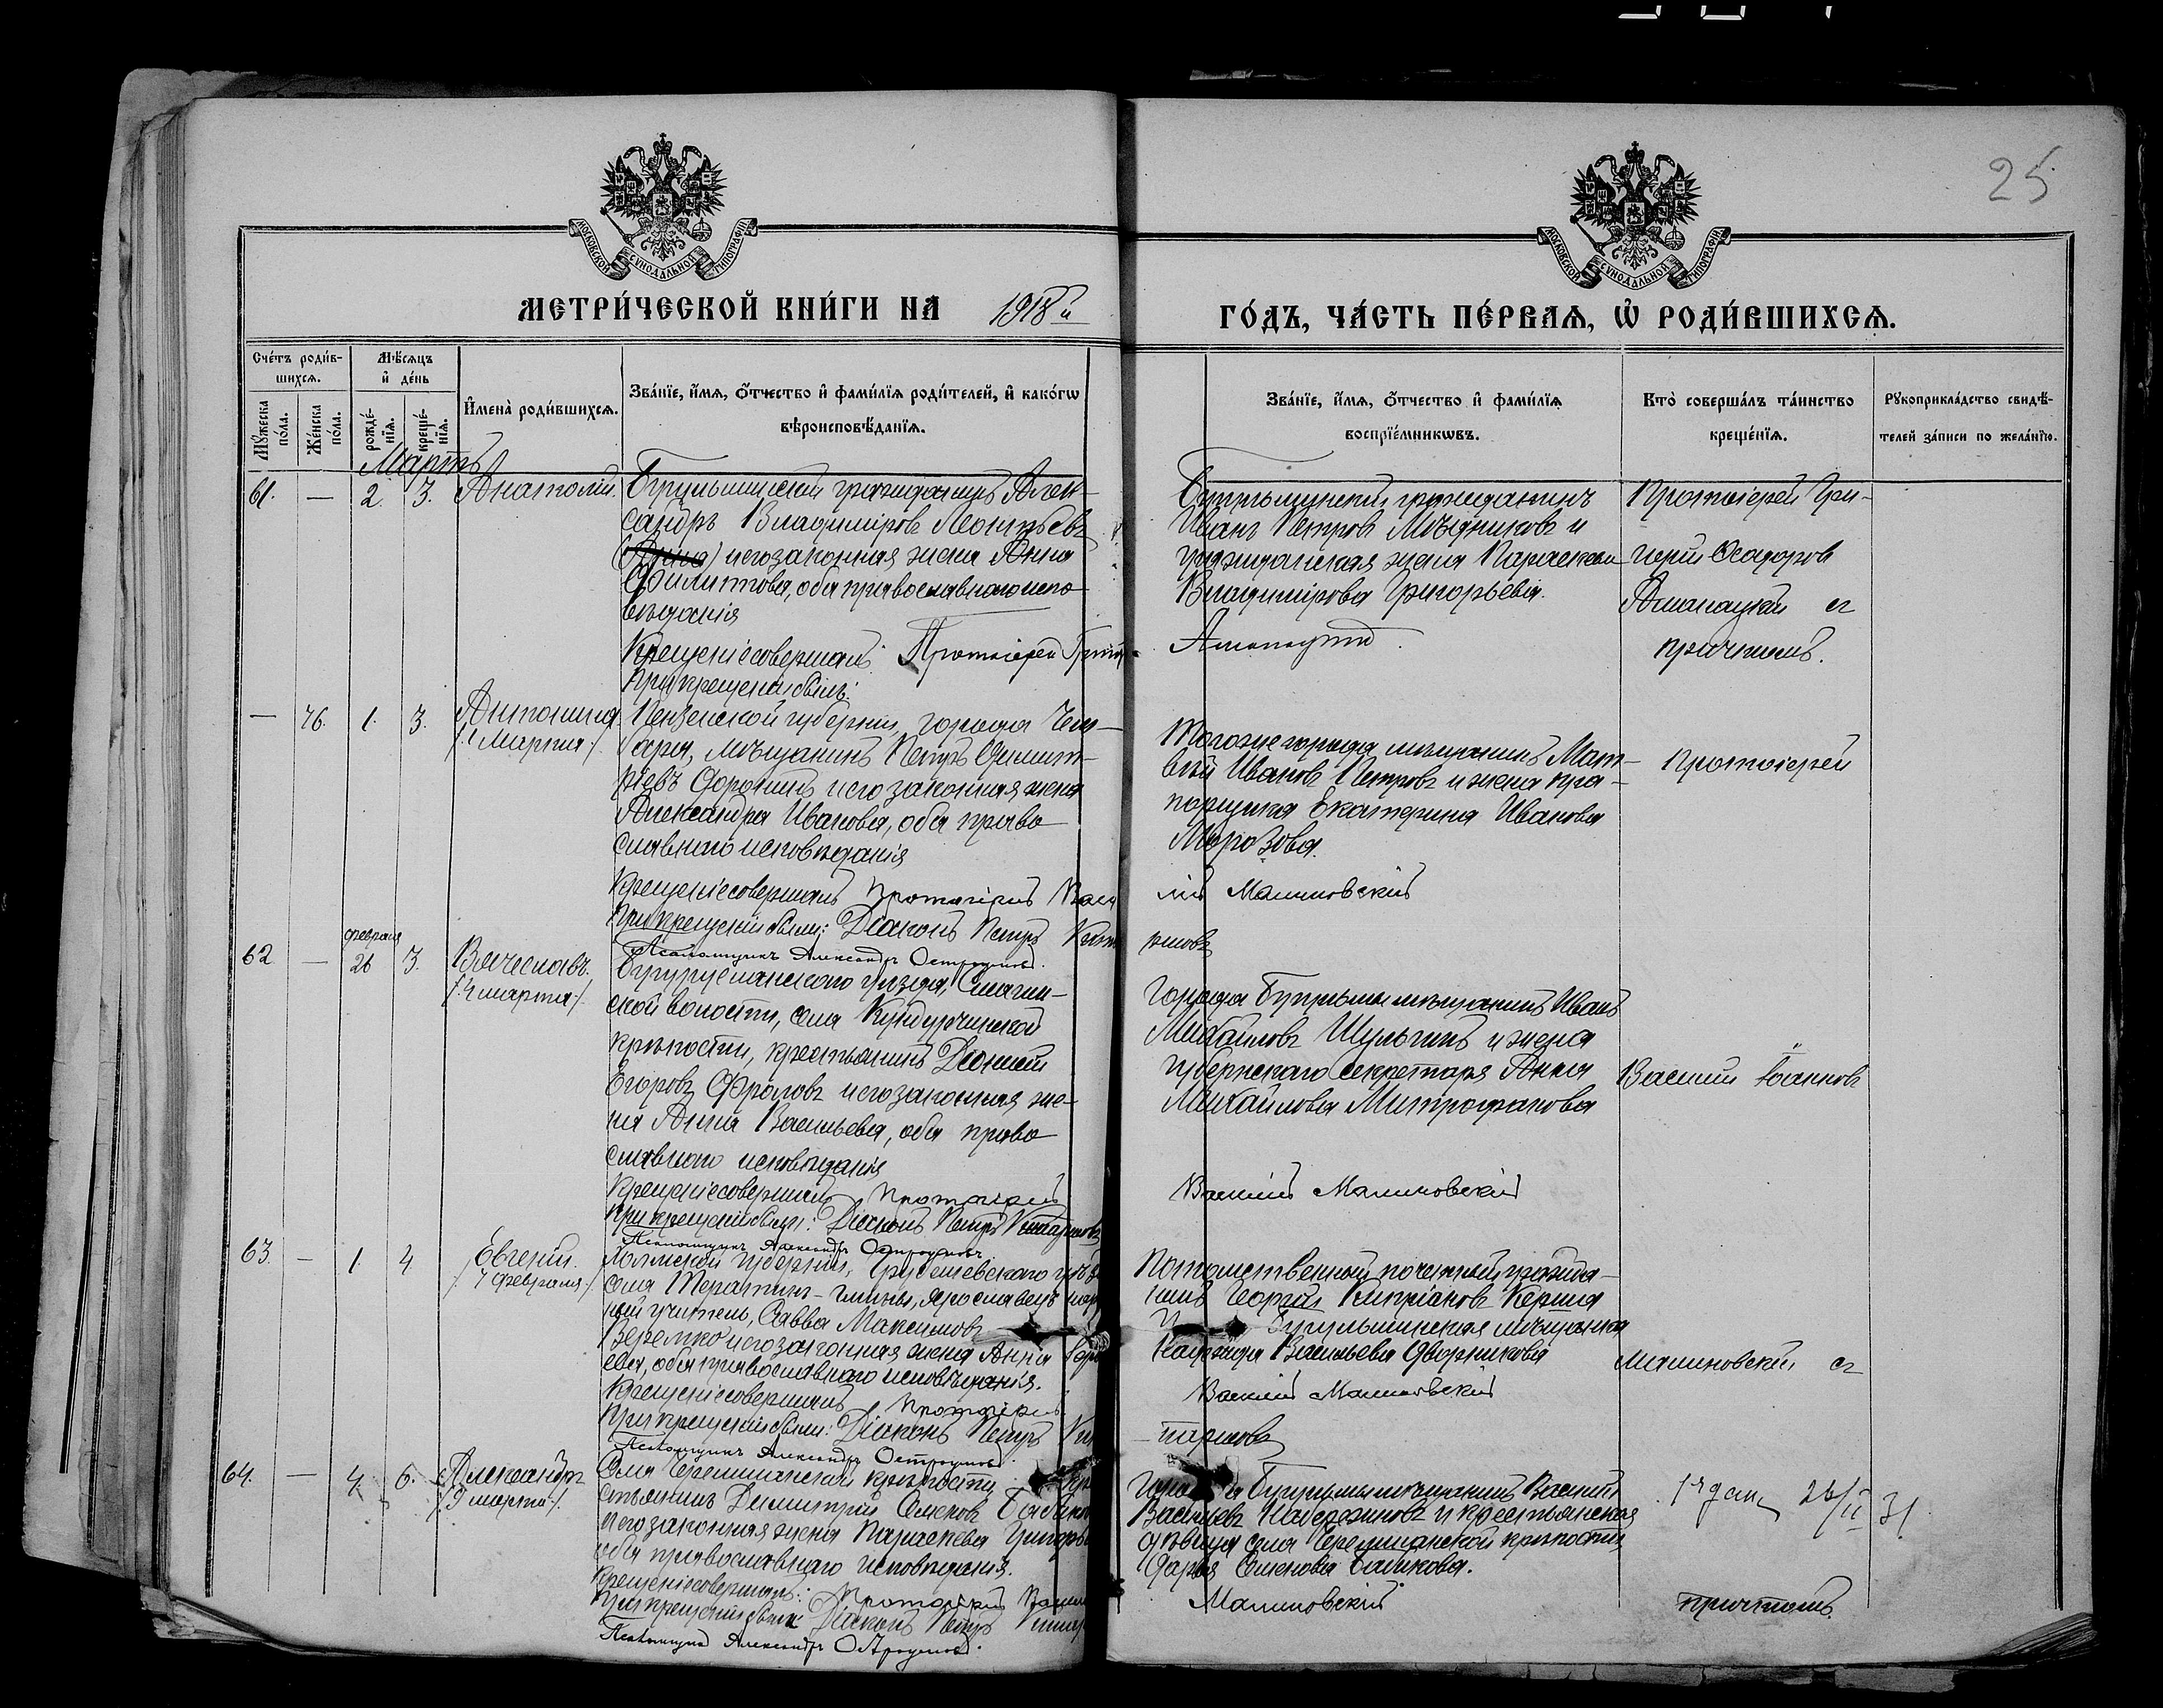 25
МОСКОВСКОЙ СУНОДАЛЬНОЙ ТИПОГРАФІИ
МОСКОВСКОЙ СУНОДАЛЬНОЙ ТИПОГРАФІИ
МЕТРИ́ЧЕСКОЙ КНИ́ГИ НА 1918й
ГО́ДЪ, ЧА́СТЬ ПЕ́РВАѦ, Ѿ РОДИ́ВШИХСѦ.
Сче́тъ роди́вшихсѧ.
Мꙋ́жеска по́ла.
Же́нска по́ла.
Мѣ́сѧцъ и҆ де́нь
рожде́нїѧ.
креще́нїѧ.
И҆мена̀ роди́вшихсѧ.
Зва́нїе, и҆́мѧ, ѻ҆́тчество и҆ фами́лїѧ роди́телей, и҆ како́гѡ
вѣроисповѣ́данїѧ.
Зва́нїе, и҆́мѧ, ѻ҆́тчество и҆ фами́лїѧ
воспрїе́мникѡвъ.
Кто̀ соверша́лъ та́инство
креще́нїѧ.
Рꙋкоприкла́дство свидѣ́-
телей за́писи по жела́нїю.
Мартъ
61. — 2. 3. Анатолій.
Бугульминскій гражданинъ Алек-
сандръ Владиміровъ Леонтьевъ
и его законная жена Анна
Филиппова, оба православнаго испо-
вѣданія
Крещеніе совершалъ: Протоіерей Григ
При крещеніи былъ:
Бугульминскій гражданинъ
Иванъ Петровъ Мѣдниковъ и
гражданская жена Параскева
Владимірова Григорьева.
Протоіерей Гри-
горій Ѳедоровъ
съ
причтомъ.
— 76. 1. 3. Антонина
/: 1 марта :/
Пензенской губерніи, города Чем-
бара, мѣщанинъ Петръ Димит-
ріевъ Доронинъ и его законная жена
Александра Иванова, оба право
славнаго исповѣданія
Крещеніе совершалъ Протоіерей Васи
лій Малиновскій
При крещеніи были: Діаконъ Петръ
Псаломщикъ Александръ Остроумовъ.
Того же города мѣщанинъ Мат-
вѣй Ивановъ Петровъ и жена пра-
порщика Екатерина Иванова
Морозова.
Протоіерей
62 — февраля 26 3. Вячеславъ.
/: 4 марта :/
Бугурусланскаго уѣзда,
ской волости, села Кундурчинской
крѣпости, крестьянинъ Діонисій
Егоровъ Фроловъ и его законная же-
на Анна Васильева, оба право
славнаго исповѣданія
Крещеніе совершалъ Протоіерей
Василій Малиновскій
При крещеніи были: Діаконъ Петръ
Псаломщикъ Александръ Остроумовъ.
Города Бугульмы мѣщанинъ Иванъ
Михайловъ Шульгинъ и жена
губернскаго секретаря Анна
Михайлова Митрофанова
Василій Іоанновъ
63. — 1. 4 Евгеній.
/: 7 февраля :/
Холмской губерніи, Грубешевскаго уѣз
села Терятинъ-
ный учитель, Савва Максимовъ
Веремко и его законная жена Анна
ева, оба православнаго исповѣданія.
Крещеніе совершалъ Протоіерей
Василій Малиновскій
При крещеніи были: Діаконъ Петръ
Псаломщикъ Александръ Остроумовъ.
Потомственный почетный гражда-
нинъ Георгій Кипріановъ
и Бугульминская мѣщанка
Васильева Дворникова
Малиновскій съ
64. — 4. 6. Александръ
/: 9 марта :/
Села Черемшанской крѣпости, кре
стьянинъ Димитрій Семеновъ
и его законная жена Параскева Григорь
оба православнаго исповѣданія.
Крещеніе совершалъ: Протоіерей Васили
Малиновскій
При крещеніи были: Діаконъ Петръ
Псаломщикъ Александръ Остроумовъ.
Города Бугульмы мѣщанинъ Василій
Васильевъ и крестьянская
дѣвица села Черемшанской крѣпости,
Дарья Семенова
26/II 31
причтомъ.